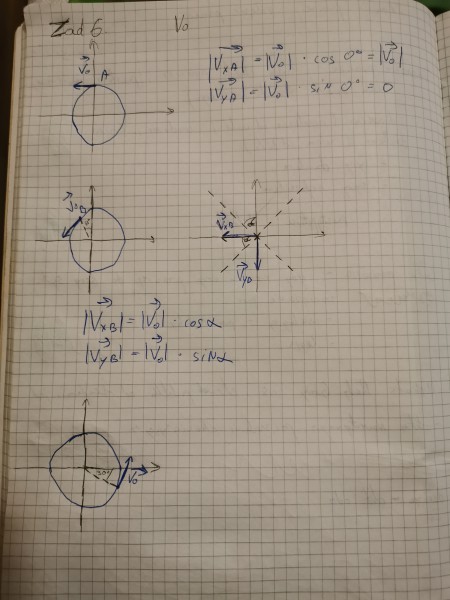 Zad 6
V₀
|VxA| = |V₀| · cos 0° = |V₀|
|VyA| = |V₀| · sin 0° = 0
V₀
A
V₀
B
α
VxB
α
α
VyB
|VxB| = |V₀| · cosα
|VyB| = |V₀| · sinα
30°
V₀